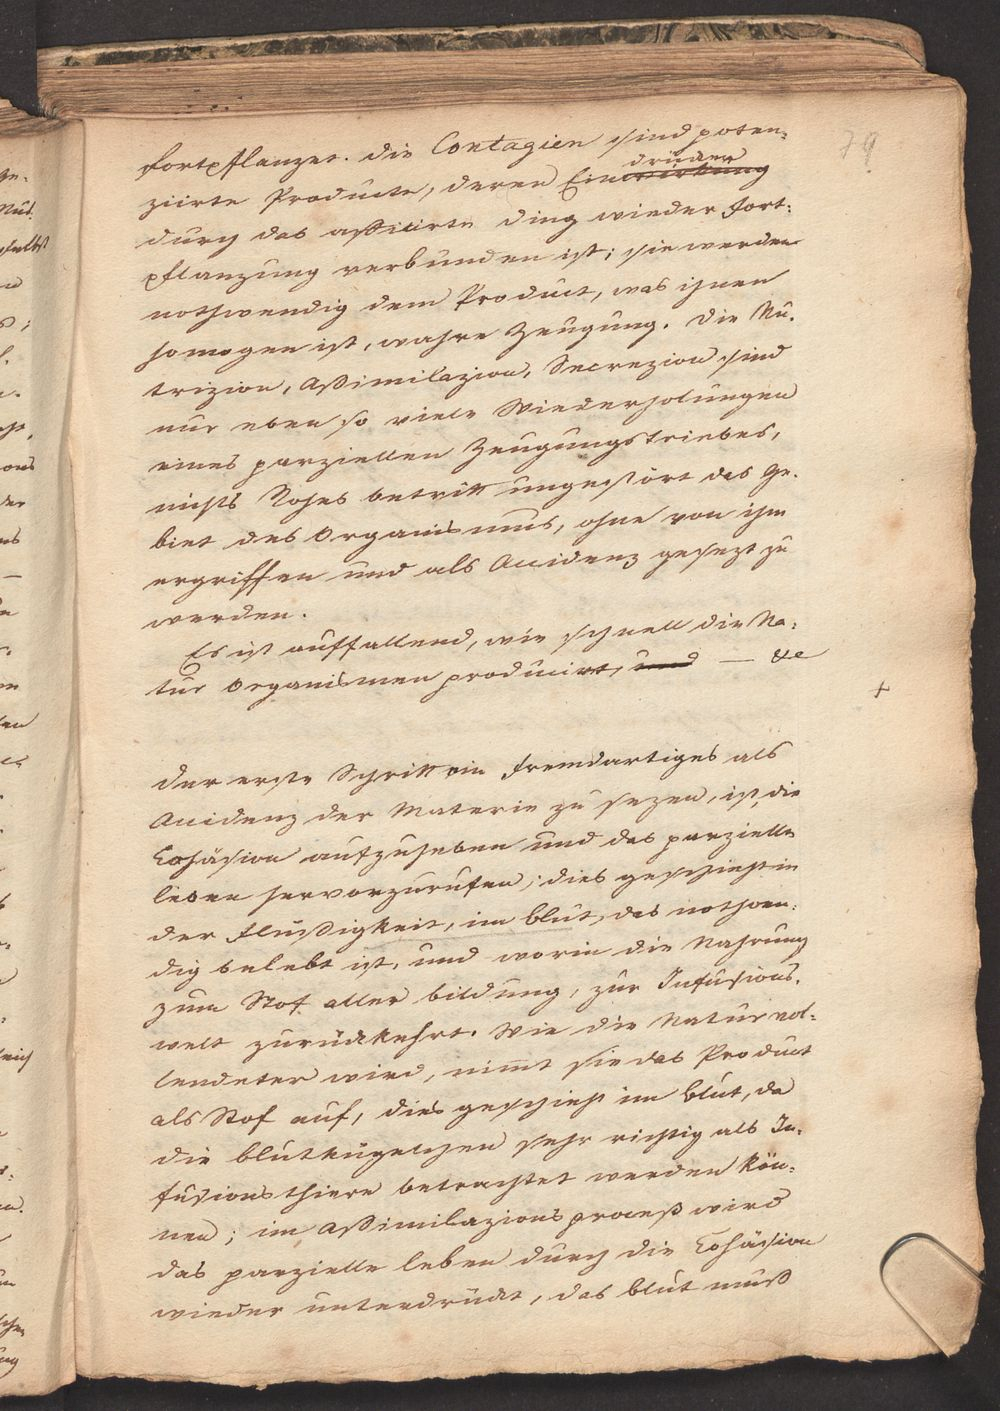 79
fortpflanzet. die Contagien sind poten-
drücken
ziirte Producte, deren Einwirkung
durch das afficirte ding wieder Fort-
pflanzung verbunden ist; sie werden
nothwendig dem Product, was ihnen
homogen ist, wahre Zeugung. die Nu-
trizion, Aßimilazion, Secrezion sind
nur eben so viele Wiederholungen
eines parziellen Zeugungstriebes,
nichts Rohes betritt ungestört das Ge-
biet des Organismus, ohne von ihm
ergriffen und als Accidenz gesezt zu
werden.
Es ist auffallend, wie schnell die Na-
tur Organismen producirt, und — &c
+
der erste Schritt ein fremdartiges als
Accidenz der Materie zu sezen, ist, die
Cohäsion aufzuheben und das parzielle
leben hervorzurufen; dies geschieht in
der Flüßigkeit, im blut, das nothwen-
dig belebt ist, und worin die Nahrung
zum Stof aller bildung, zur Infusions-
welt zurückkehrt. Wie die Natur vol-
lendeter wird, nimt sie das Product
als Stof auf, dies geschieht im blut, da
die blutkügelchen sehr richtig als In-
fusionsthiere betrachtet werden kön-
nen; im Aßimilazionsproceß wird
das parzielle leben durch die Cohäsion
wieder unterdrückt, das blut muß